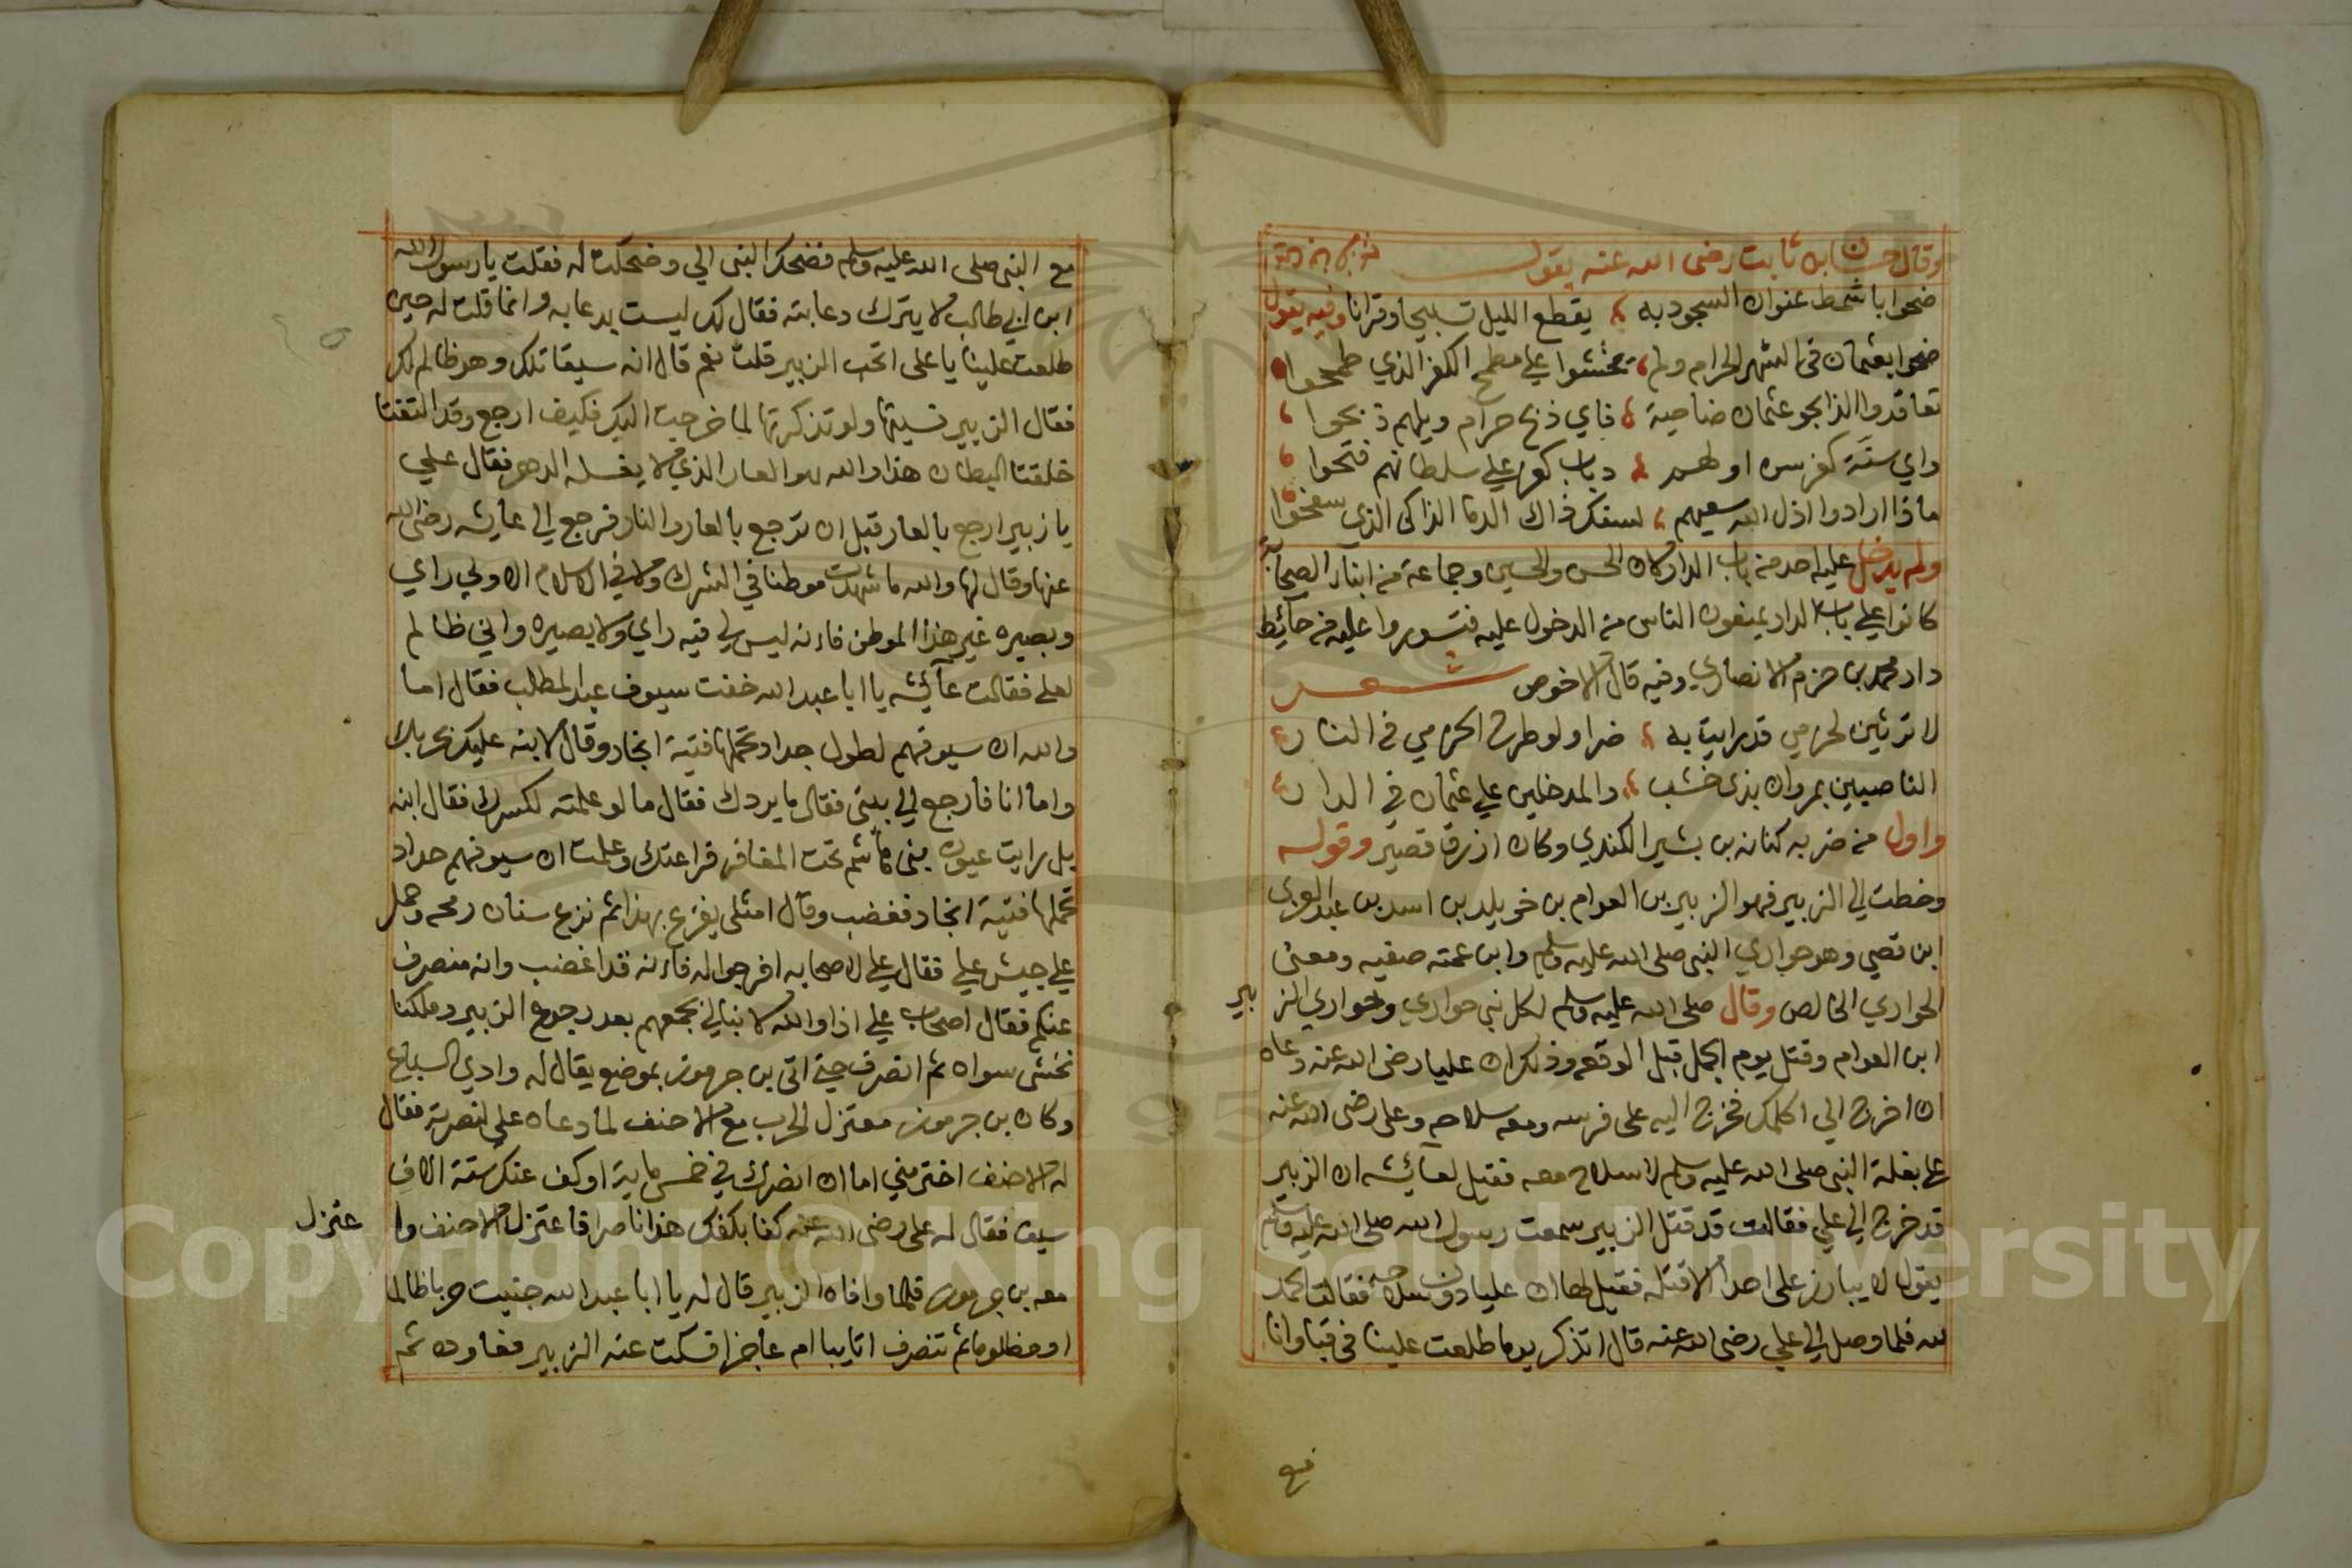 وقال حسان بن ثابت رضى الله عنه يقول
ضحوا باشمط عنوان السجود به يقطع الليل تسبيحا وقرانا وفيه يقول
ضحوا بعثمان في الشهر الحرام ولم يخشوا علي مطمح الكفر الذي طمحوا
تعاقدوا الذابحو عثمان ضاحية فاي ذبح حرام ويلهم ذبحوا
واي سنة كفر سن اولهم وباب كفر علي سلطانهم فتحوا
ماذا ارادوا اذل الله سعيهم لسفك ذاك الدما الذاكى الذي سفحوا
ولم يدخل عليه احد من باب الدار لان الحسن والحسين وجماعة من ابناء الصحابة
كانوا علي باب الدار يمنعون الناس من الدخول عليه فتسوروا عليه من حائط
دار محمد بن حزم الانصاري وفيه قال الاخوص شعر
لا ترثين لحزمي قد رايت به ضرا ولو طرح الحزمي في النار
الناصبين بمروان بذي خشب والمدخلين علي عثمان في الدار
واول من ضربه كنانه بن بشير الكندي وكان ازرق قصير وقوله
وخطت الي الزبير فهو الزبير بن العوام بن خويلد بن اسد بن عبد العزى
ابن قصي وهو حواري النبى صلى الله عليه وسلم وابن عمته صفيه ومعنى
الحواري الخالص وقال صلى الله عليه وسلم لكل نبي حواري وحواري الزبير
ابن العوام وقتل يوم الجمل قبل الوقعه وذلك ان عليا رضى الله عنه دعاه
ان اخرج الي اكلمك فخرج اليه على فرسه ومعه سلاحه وعلى رضى الله عنه
على بغلة النبى صلى الله عليه وسلم لا سلاح معه فقيل لعائشه ان الزبير
قد خرج الي علي فقالت قد قتل الزبير سمعت رسول الله صلى الله عليه وسلم
يقول لا يبارز على احدا الا قتله فقيل لها ان عليا دون سلاحه فقالت الحمد
لله فلما وصل الي علي رضى الله عنه قال اتذكر يوما طلعت علينا في قبا وانا
مع
مع النبى صلى الله عليه وسلم فضحك النبى الي وضحكت له فقلت يا رسول الله
ابن ابي طالب لا يترك دعابته فقال لك ليست بدعابه وانما قلت له حين
طلعت علينا يا على اتحب الزبير قلت نعم قال انه سيقاتلك وهو ظالم لك
فقال الزبير نسيتها ولو تذكرتها لما خرجت اليك فكيف ارجع وقد التفتا
خلقتا البطان هذا والله هو العار الذي لا يغسله الدهر فقال علي
يا زبير ارجع بالعار قبل ان ترجع بالعار والنار فرجع الي عايشه رضى الله
عنها وقال لها والله ما شهدت موطنا في الشرك ولا في الاسلام الا ولي راي
وبصيره غير هذا الموطن فانه ليس لي فيه راي ولا بصيره واني ظالم
لعلي فقالت عائشه يا ابا عبد الله خفت سيوف عبد المطلب فقال اما
والله ان سيوفهم لطول جداد تحملها فتية انجاد وقال لابنه عليك بحربك
واما انا فارجع الي بيتى فقال ما يردك فقال ما لو علمته لكسرك فقال ابنه
بل رايت عيون بنى هاشم تحت المغافر فراعتك وعلمت ان سيوفهم حداد
تحملها فتية انجاد فغضب وقال امثلى يفزع بهذا ثم نزع سنان رمحه وحمل
علي جيش علي فقال علي لاصحابه افرجوا له فانه قد اغضب وانه منصرف
عنكم فقال اصحاب علي اذا والله لا نبالي بجمعهم بعد رجوع الزبير وملكنا
نخشى سواه ثم انصرف حتي اتي بن جرموز بموضع يقال له وادي السباع
وكان بن جرموز معتزل الحرب مع الاحنف لما دعاه علي لنصرته فقال
له الاحنف اختر مني اما ان انصرك في خمس ماية او كف عنك ستة الاف
سيف فقال له على رضى الله عنه كفا بكفك هذا ناصرا فاعتزل الاحنف وا
عتزل
معه بن جرموز فلما وافاه الزبير قال له يا ابا عبد الله جنيت حربا ظالما
او مظلوما ثم تنصرف اتايبا ام عاجزا فسكت عنه الزبير فعاوده ثم